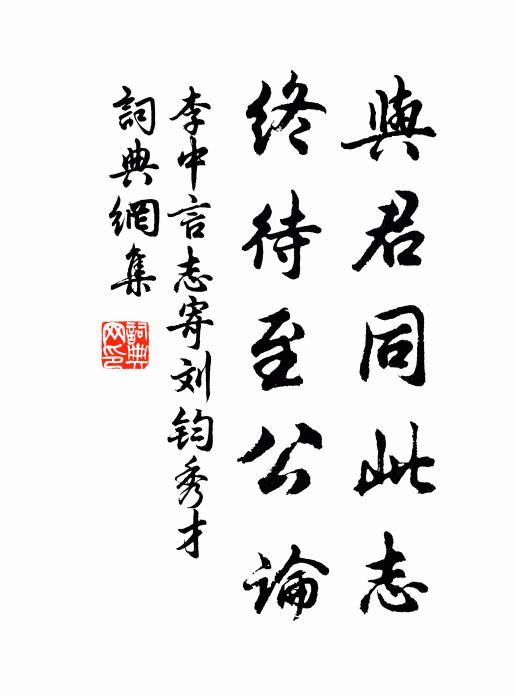 與君同此志
終待至公論
李中言志寄刘鈞秀才
詞典網集
詞典網印